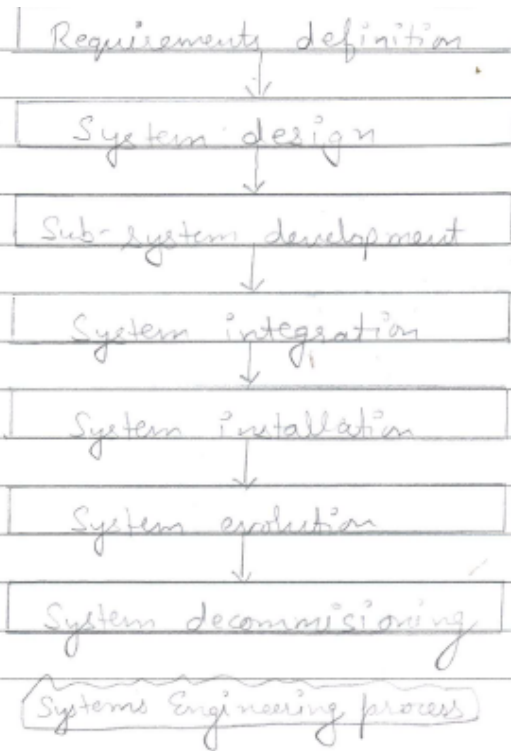 Requirements definition
System design
Sub-system development
System integration
System installation
System evolution
System decommisioning
Systems Engineering process